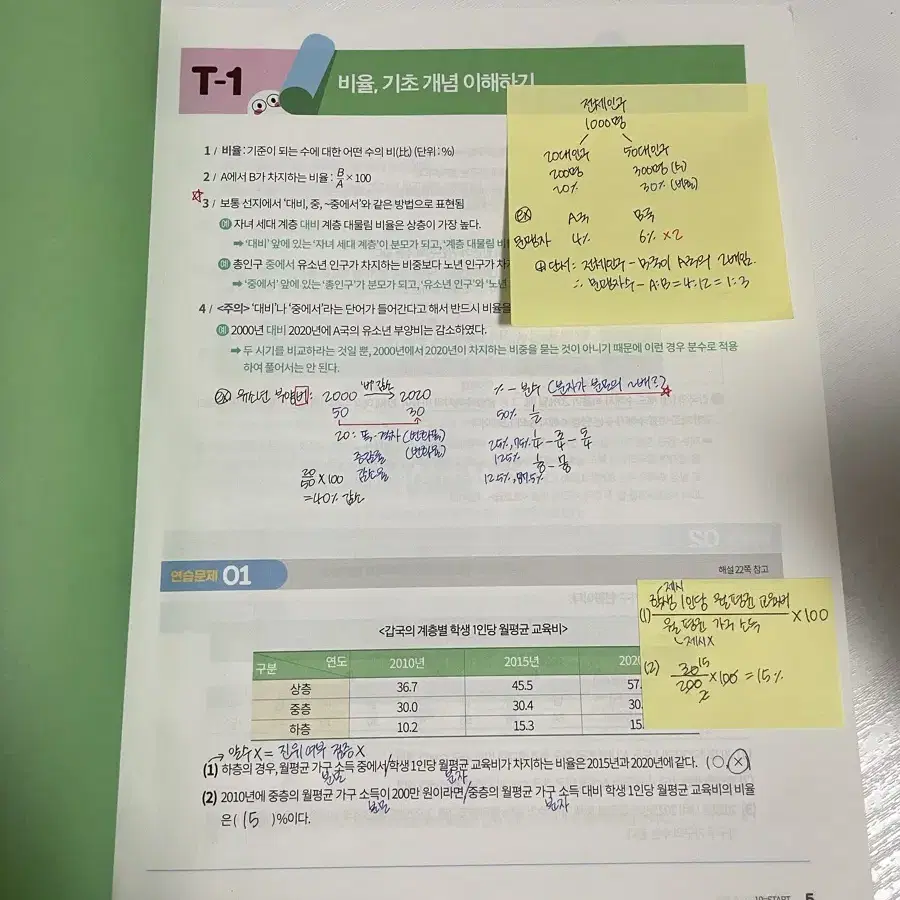 T-1
비율, 기초 개념 이해하기
1 / 비율 : 기준이 되는 수에 대한 어떤 수의 비(比) (단위 : %)
2 / A에서 B가 차지하는 비율 : B/A × 100
3 / 보통 선지에서 '대비, 중, ~중에서'와 같은 방법으로 표현됨
예 자녀 세대 계층 대비 계층 대물림 비율은 상층이 가장 높다.
➡ '대비' 앞에 있는 '자녀 세대 계층'이 분모가 되고, '계층 대물림 비
예 총인구 중에서 유소년 인구가 차지하는 비중보다 노년 인구가 차
➡ '중에서' 앞에 있는 '총인구'가 분모가 되고, '유소년 인구'와 '노년
4 / <주의> '대비'나 '중에서'라는 단어가 들어간다고 해서 반드시 비율을
예 2000년 대비 2020년에 A국의 유소년 부양비는 감소하였다.
➡ 두 시기를 비교하라는 것일 뿐, 2000년에서 2020년이 차지하는 비중을 묻는 것이 아니기 때문에 이런 경우 분수로 적용
하여 풀어서는 안 된다.
전체인구
1000명
20대인구 50대인구
200명 300명 (비)
20% 30% (비율)
ex A국 B국
문맹자 4% 6% ×2
단서 : 전체인구 - B국이 A국의 2배임.
∴ 문맹자수 - A:B = 4:12 = 1:3
ex 유소년 부양비: 2000 → 2020
50 30
20 : 폭·격차 (변화폭)
증감율 (변화율)
20/50 × 100 감소율
= 40% 감소
% - 분수 (분자가 분모의 ~배?)
50% 1/2
25%, 75% 1/4 - 3/4 - 5/4
125%
12.5%, 87.5% 1/8 - 7/8
연습문제 01
해설 22쪽 참고
<갑국의 계층별 학생 1인당 월평균 교육비>
구분 연도 2010년 2015년 202
상층 36.7 45.5 57.
중층 30.0 30.4 30.
하층 10.2 15.3 15.
제시
(1) 학생 1인당 월평균 교육비 / 월평균 가구 소득 × 100
제시X
(2) 30 15 / 200 2 × 100 = 15%
→ 알수X = 진위여부 검증X
(1) 하층의 경우, 월평균 가구 소득 중에서/학생 1인당 월평균 교육비가 차지하는 비율은 2015년과 2020년에 같다. (○, ×)
분모 분자
(2) 2010년에 중층의 월평균 가구 소득이 200만 원이라면/중층의 월평균 가구 소득 대비 학생 1인당 월평균 교육비의 비율
분모 분자
은( 15 )%이다.
5